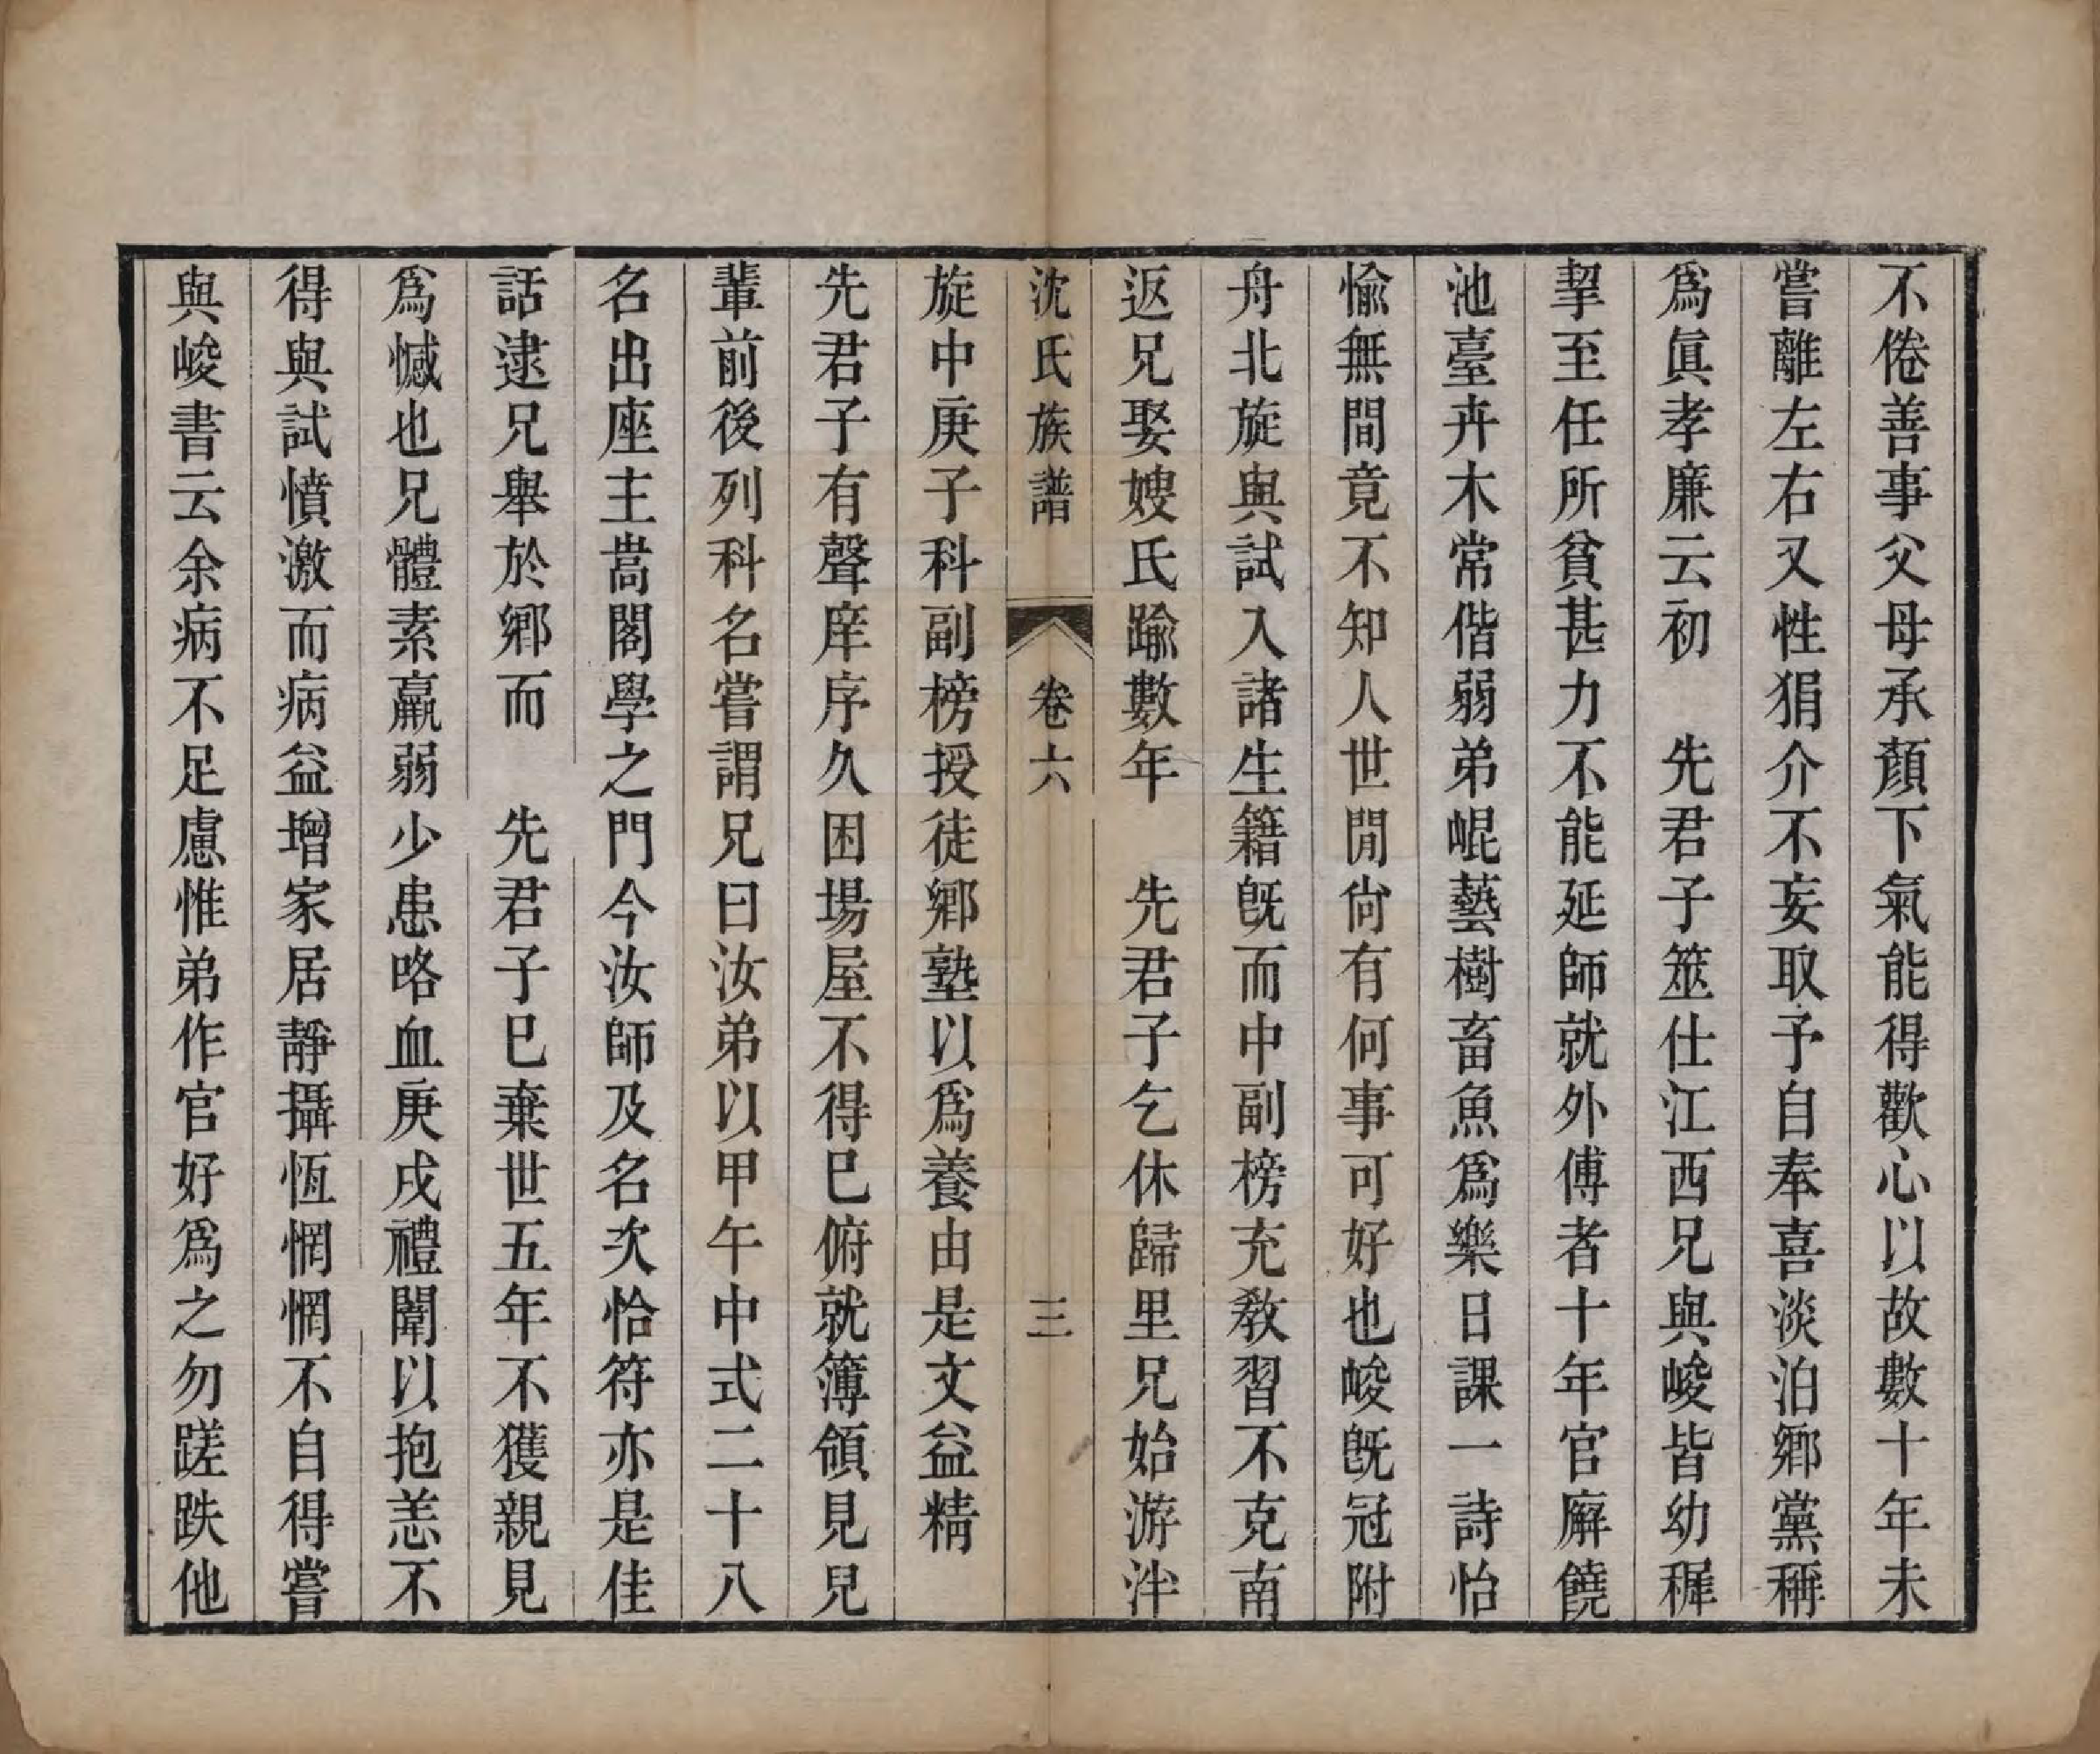 不倦善事父母承顏下氣能得歡心以故數十年未
嘗離左右又性狷介不妄取予自奉喜淡泊鄉黨稱
爲眞孝廉云初　先君子筮仕江西兄與峻皆幼穉
挈至任所貧甚力不能延師就外傅者十年官廨饒
池臺卉木常偕弱弟崐藝樹畜魚爲樂日課一詩怡
愉無間竟不知人世閒尙有何事可好也峻旣冠附
舟北旋與試入諸生籍旣而中副榜充敎習不克南
返兄娶嫂氏踰數年　先君子乞休歸里兄始游泮
沈氏族譜　卷六　三
旋中庚子科副榜授徒鄉塾以爲養由是文益精
先君子有聲庠序久困場屋不得已俯就簿領見兒
輩前後列科名嘗謂兄曰汝弟以甲午中式二十八
名出座主嵩閣學之門今汝師及名次恰符亦是佳
話逮兄舉於鄉而　先君子已棄世五年不獲親見
爲憾也兄體素羸弱少患咯血庚戌禮闈以抱恙不
得與試憤激而病益增家居靜攝恆惘惘不自得嘗
與峻書云余病不足慮惟弟作官好爲之勿蹉跌他